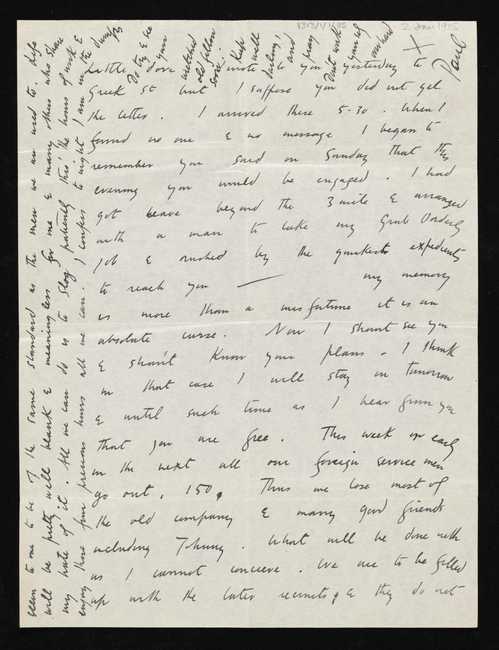 2 Jan 1915
Little Dove I wrote to you yesterday to
Greek St but I suppose you did not get
the letter. I arrived there 5-30. When I
found no one & no message I began to
remember you said on Sunday that this
evening you would be engaged. I had
got leave beyond the 3 mile & arranged
with a man to take my Grub Orderly
job & rushed by the quickest expedients
to reach you — my memory
is more than a misfortune it is an
absolute curse. Now I shant see you
& shan't know your plans. I think
in that case I will stay on tomorrow
& until such time as I hear from you
that you are free. This week or early
in the next all our foreign service men
go out, 150, Thus we lose most of
the old company & many good friends
including Johnny. What will be done with
us I cannot conceive. We are to be filled
up with the later recruits, & they do not
seem to me to be of the same standard as the men we are used to. Life
will be pretty well blank & meaningless for me & many others who share
my hate of it. All we can do is to slog patiently thro' the hours of work &
enjoy those few precious hours all we can. I confess to night I am in the dumps
So try & be
your
wretched
old fellow
soon.
Keep
well
darling,
and
pray
dont work
yourself
too hard
X
Paul